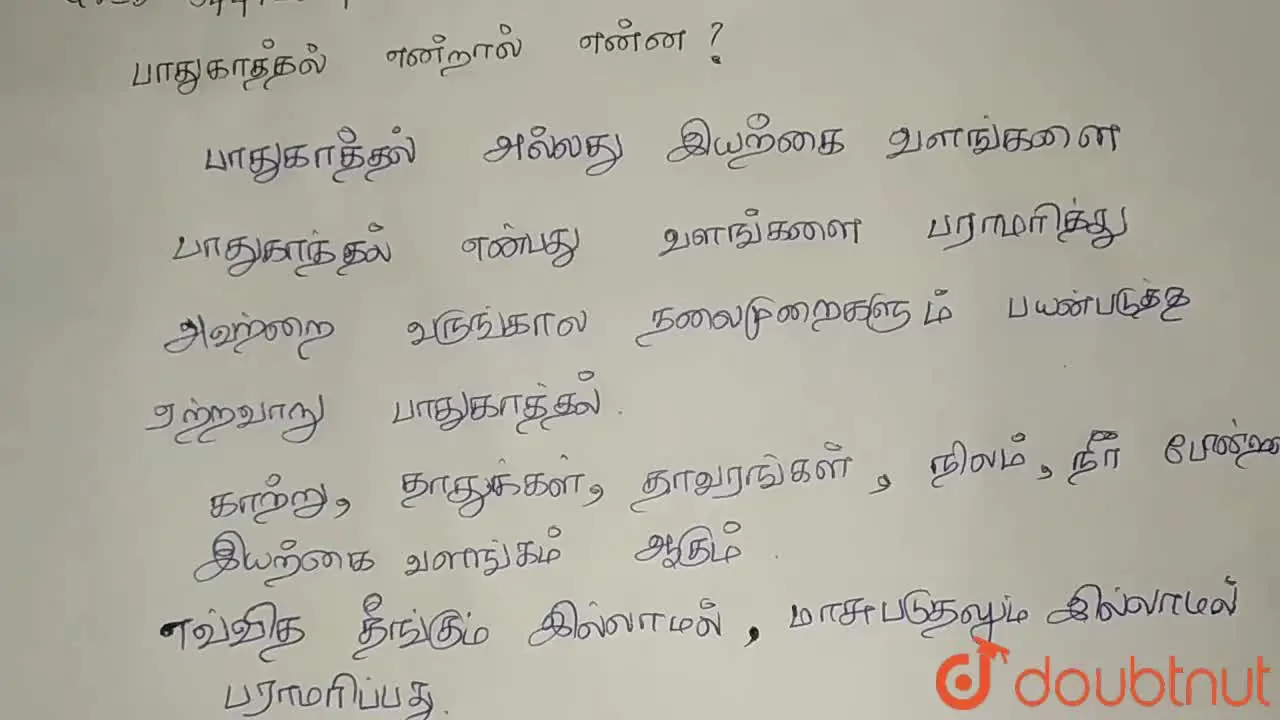 பாதுகாத்தல் என்றால் என்ன ?
பாதுகாத்தல் அல்லது இயற்கை வளங்களை
பாதுகாத்தல் என்பது வளங்களை பராமரித்து
அவற்றை வருங்கால தலைமுறைகளும் பயன்படுத்த
ஏற்றவாறு பாதுகாத்தல் .
காற்று, தாதுக்கள், தாவரங்கள் , நிலம், நீர்
இயற்கை வளங்கம் ஆகும் .
எவ்வித தீங்கும் இல்லாமல் , மாசுபடுதலும் இல்லாமல்
பராமரிப்பது.
doubtnut